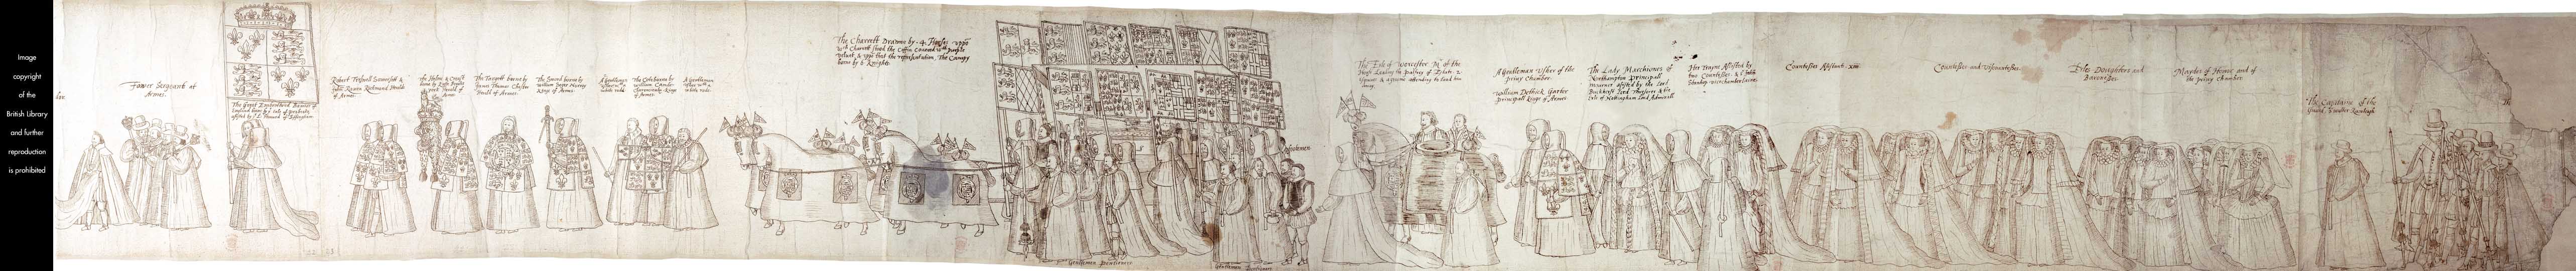 Image
copyright
of the
British Library
and further
reproduction
is prohibited
Fower Sergeant at
Armes.
The Great Embrothered Banner of
England
Robert Treswell Somersett &
Richmond
of Armes.
The Targett borne by
Iames Thomas Chester
Herald of Armes.
The Sword borne by
William Segar Norrey
King of Armes.
A Gentleman
Vsher with a
white rodd.
The Cote borne by
William Camden
Clarenceulx King
of Armes
A Gentleman
Vsher with a
white rodd.
The Charrett Drawne by .4. Horses vppon
wch Charrett stood the Coffin Couered wth Purple
veluet & vpon that the representation, The Canapy
borne by 6 Knights.
Gentlemen Pentioners
Gentlemen Pentioners
footemen
The Erle of Worcester Mr of the
Horse Leading the Palfrey of Estate. 2
Esquires & a groome attending to lead him
away.
A Gentleman Vsher of the
Priuy Chamber.
William Dethick Garter
Principall Kinge of Armes
The Lady Marchiones of
Northampton Principall
Mourner assisted by the Lord
Buckhurst Lord Treasurer & the
Erle of Nottingham Lord Admirall
Her Trayne Assisted by
two Countesses & Sr Iohn
Stanhop vicechamberlaine.
Countesses Assistant. xiiii
Countesses and Viscountesses.
Erles Daughters and
Baronesses
Maydes of Honor and of
the priuy Chamber.
The Capitaine of the
Guard Sr Walter Rawleigh
Th